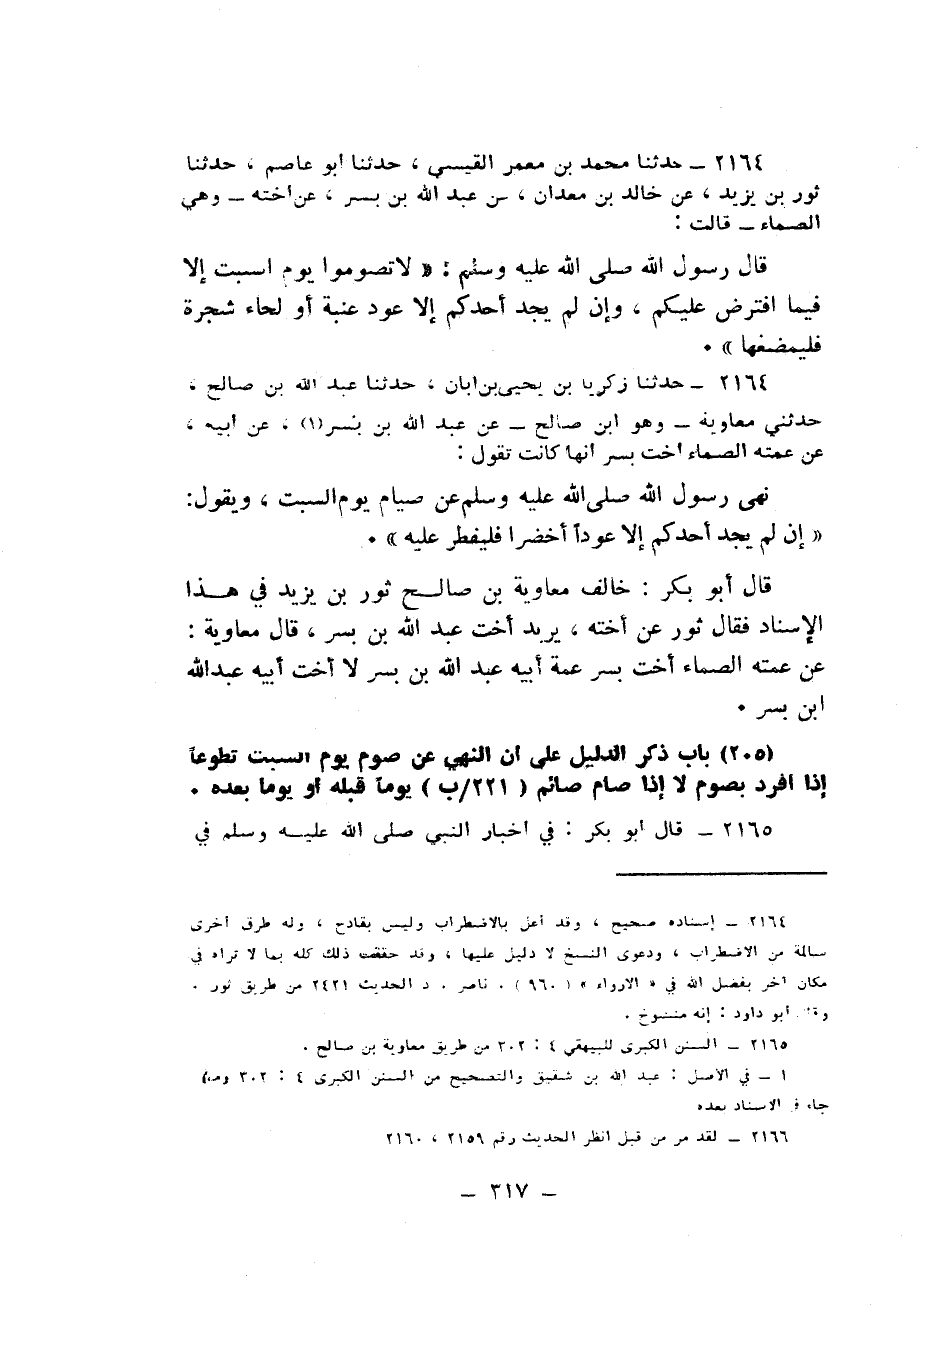 ٢١٦٤ ــ حدثنا محمد بن معمر القيسي ، حدثنا أبو عاصم ، حدثنا
ثور بن يزيد ، عن خالد بن معدان ، عن عبد الله بن بسر ، عن أخته ــ وهي
الصماء ــ قالت :
قال رسول الله صلى الله عليه وسلم : « لا تصوموا يوم السبت إلا
فيما افترض عليكم ، وإن لم يجد أحدكم إلا عود عنبة أو لحاء شجرة
فليمضغها » .
٢١٦٤ ــ حدثنا زكريا بن يحيى بن ابان ، حدثنا عبد الله بن صالح ،
حدثني معاوية ــ وهو ابن صالح ــ عن عبد الله بن بسر(١) ، عن أبيه ،
عن عمته الصماء أخت بسر انها كانت تقول :
نهى رسول الله صلى الله عليه وسلم عن صيام يوم السبت ، ويقول:
« إن لم يجد أحدكم إلا عوداً أخضرا فليفطر عليه » .
قال أبو بكر : خالف معاوية بن صالــح ثور بن يزيد في هــذا
الإسناد فقال ثور عن أخته ، يريد أخت عبد الله بن بسر ، قال معاوية :
عن عمته الصماء أخت بسر عمة أبيه عبد الله بن بسر لا أخت أبيه عبدالله
ابن بسر .
(٢٠٥) باب ذكر الدليل على ان النهي عن صوم يوم السبت تطوعاً
إذا افرد بصوم لا إذا صام صائم ( ٢٢١/ب ) يوماً قبله أو يوما بعده .
٢١٦٥ ــ قال أبو بكر : في أخبار النبي صلى الله عليــه وسلم في
٢١٦٤ ــ إسناده صحيح ، وقد أعل بالاضطراب وليس بقادح ، وله طرق أخرى
سالمة من الاضطراب ، ودعوى النسخ لا دليل عليها ، وقد حققت ذلك كله بما لا تراه في
مكان آخر بفضل الله في « الارواء » ( ٩٦٠ ) . ناصر . د الحديث ٢٤٢١ من طريق ثور .
وقال أبو داود : إنه منسوخ .
٢١٦٥ ــ السنن الكبرى للبيهقي ٤ : ٣٠٢ من طريق معاوية بن صالح .
١ ــ في الاصل : عبد الله بن شقيق والتصحيح من السنن الكبرى ٤ : ٣٠٢ ومما
جاء في الاسناد بعده
٢١٦٦ ــ لقد مر من قبل انظر الحديث رقم ٢١٥٩ ، ٢١٦٠
ــ ٣١٧ ــ